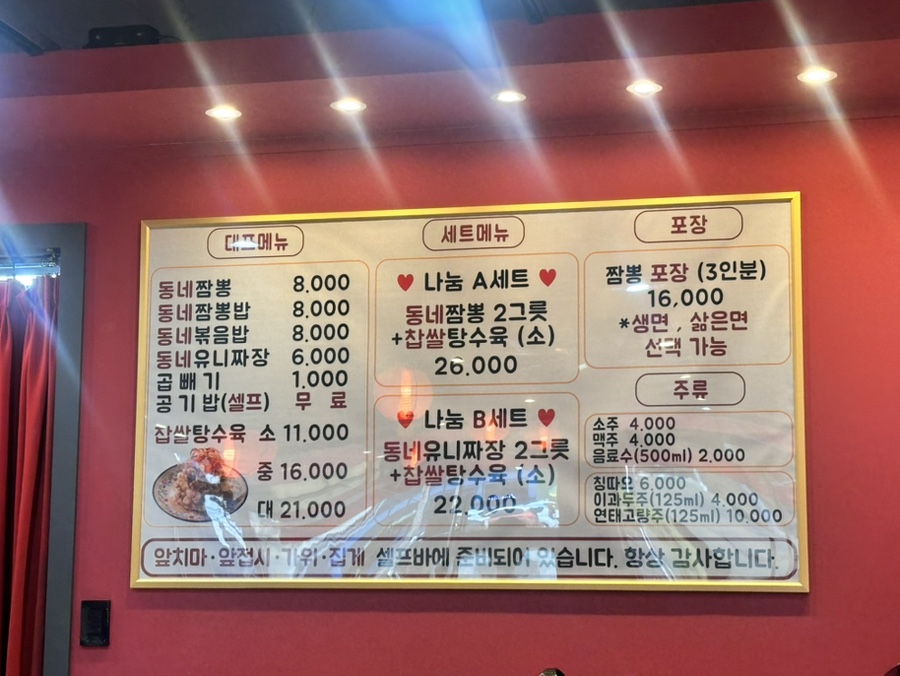 대표메뉴
동네짬뽕 8,000
동네짬뽕밥 8,000
동네볶음밥 8,000
동네유니짜장 6,000
곱빼기 1,000
공기밥(셀프) 무료
찹쌀탕수육 소 11,000
중 16,000
대 21,000
세트메뉴
♥ 나눔 A세트 ♥
동네짬뽕 2그릇
+찹쌀탕수육 (소)
26,000
♥ 나눔 B세트 ♥
동네유니짜장 2그릇
+찹쌀탕수육 (소)
22,000
포장
짬뽕 포장 (3인분)
16,000
*생면, 삶은면
선택 가능
주류
소주 4,000
맥주 4,000
음료수(500ml) 2,000
칭따오 6,000
이과두주(125ml) 4,000
연태고량주(125ml) 10,000
앞치마·앞접시·가위·집게 셀프바에 준비되어 있습니다. 항상 감사합니다.